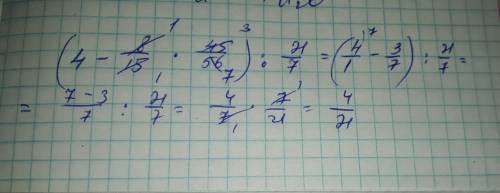 (4 - 8/15 · 45/56) : 21/7 = (4/1 - 3/7) : 21/7 =
= (7 - 3)/7 : 21/7 = 4/7 · 7/21 = 4/21